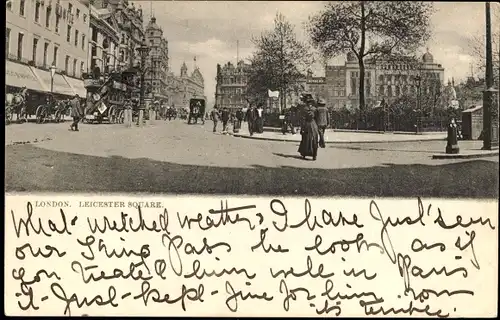 LONDON. LEICESTER SQUARE.
What wretched weather, I have Just seen
our King Pass he looks as if
you treated him well in Paris
it Just kept fine for him now
its terrible.